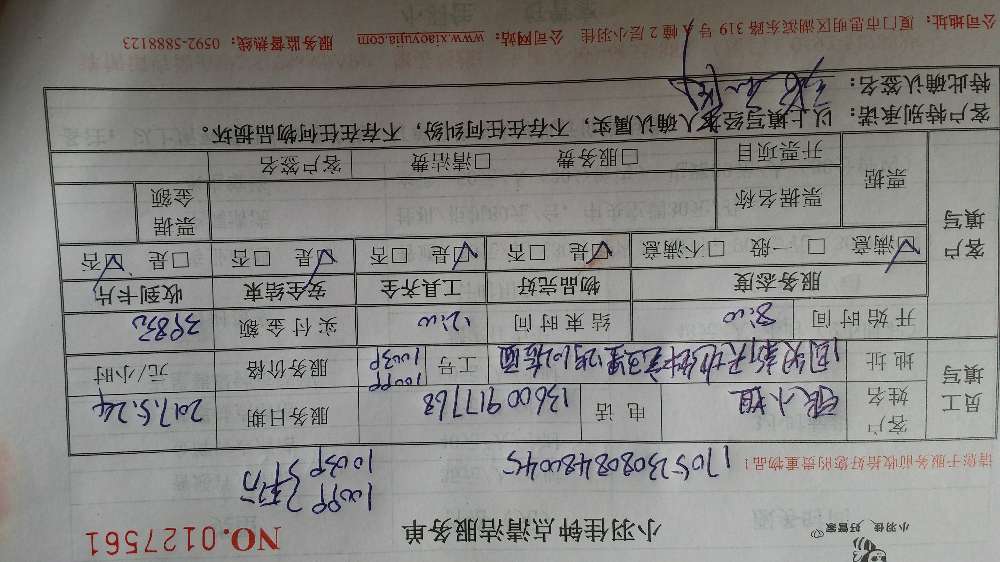 小羽佳 好管家
小羽佳钟点清洁服务单
NO.0127561
请您于服务前收拾好您的贵重物品!
170523080848004S
员工填写
客户姓名 张小姐 电话 13600917768 服务日期 2017.5.24
地址 工号 服务价格 元/小时
开始时间 8:00 结束时间 12:00 实付金额
客户填写
服务态度 物品完好 工具齐全 安全结束 收到卡片
☑满意 □一般 □不满意 ☑是 □否 ☑是 □否 ☑是 □否 □是 ☑否
票据 票据名称 票据金额
开票项目 □服务费 □清洁费 客户签名
客户特别承诺: 以上填写经本人确认属实,不存在任何纠纷,不存在任何物品损坏。
特此确认签名:
公司地址: 厦门市思明区湖滨东路 319 号 A 幢 2 层小羽佳 公司网站: www.xiaoyujia.com 服务监督热线: 0592-5888123